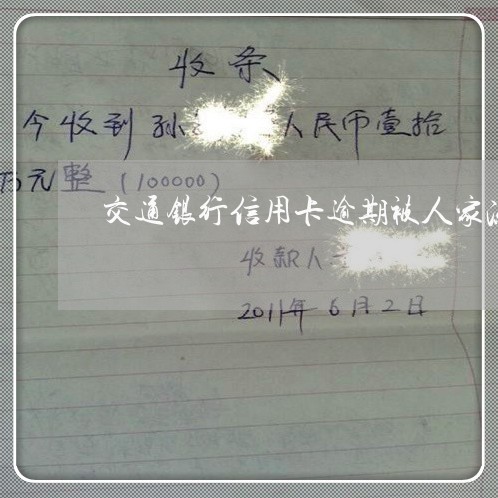 收条
今收到孙 人民币壹拾
万元整（100000）
交通银行信用卡逾期被人家
收款人
2011年6月2日